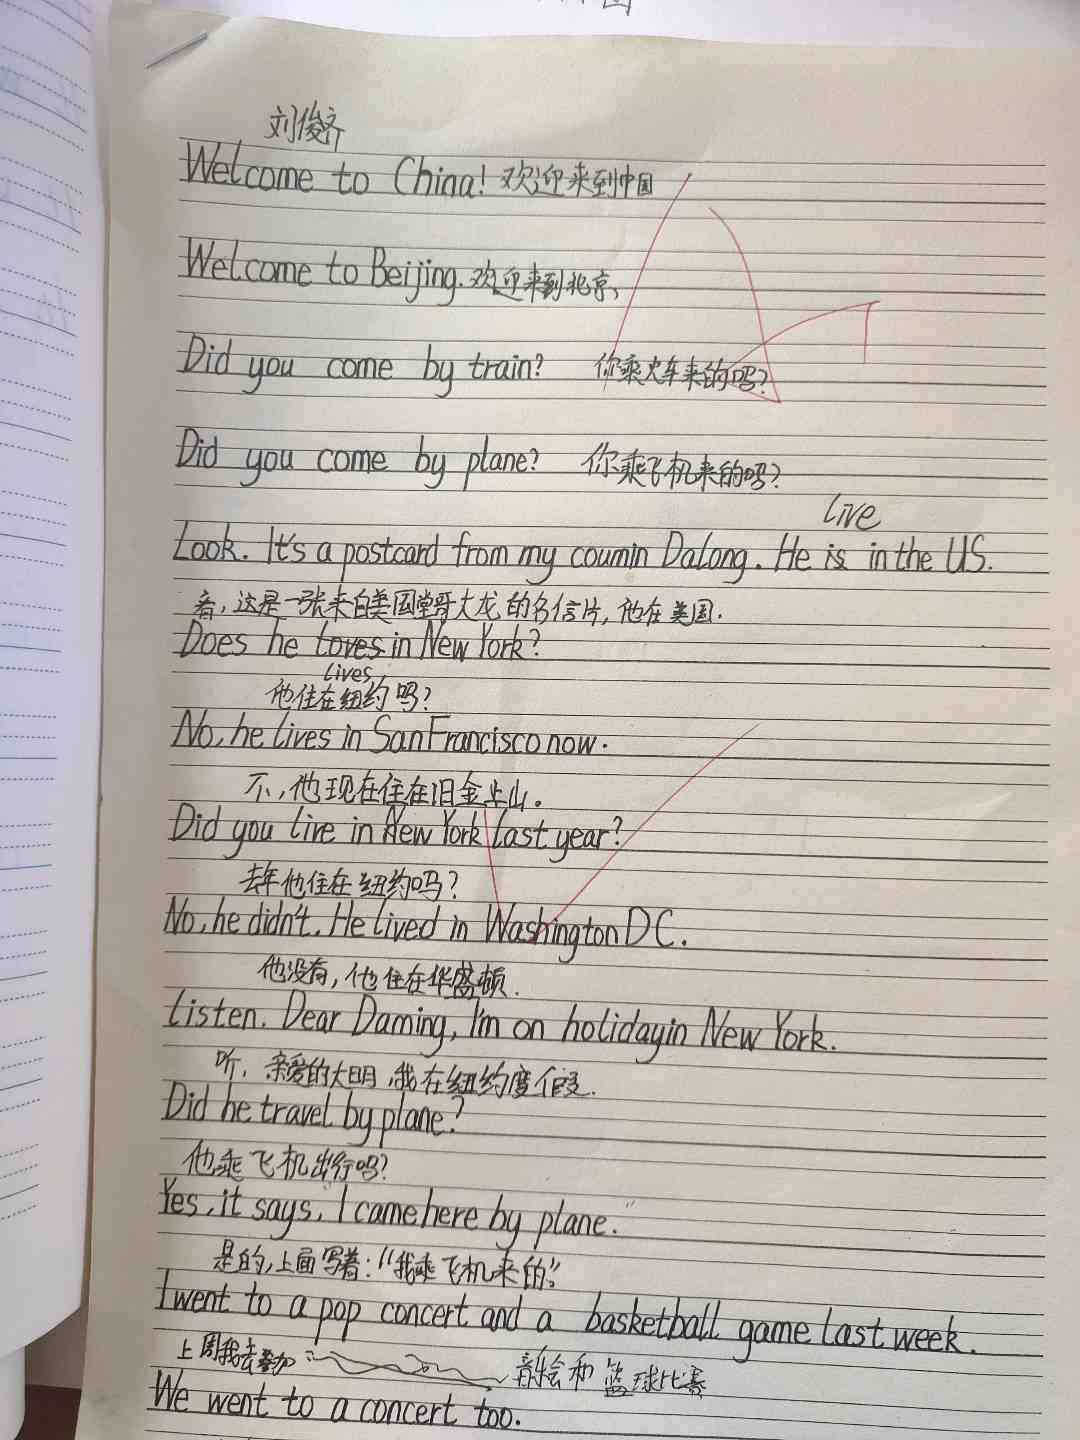 刘俊齐
Welcome to China! 欢迎来到中国
Welcome to Beijing. 欢迎来到北京、
Did you come by train? 你乘火车来的吗?
Did you come by plane? 你乘飞机来的吗?
live
Look. It's a postcard from my coumin Dalong. He is in the US.
看,这是一张来自美国堂哥大龙的名信片,他在美国.
Does he loves in New York?
lives
他住在纽约吗?
No, he lives in San Francisco now.
不,他现在住在旧金山。
Did you live in New York last year?
去年他住在纽约吗?
No, he didn't. He lived in Washington DC.
他没有,他住在华盛顿.
Listen. Dear Daming, I'm on holidayin New York.
听,亲爱的大明,我在纽约度假.
Did he travel by plane?
他乘飞机出行吗?
Yes, it says, "I came here by plane."
是的,上面写着:"我乘飞机来的"。
I went to a pop concert and a basketball game last week.
上周我去参加 音乐会和篮球比赛
We went to a concert too.